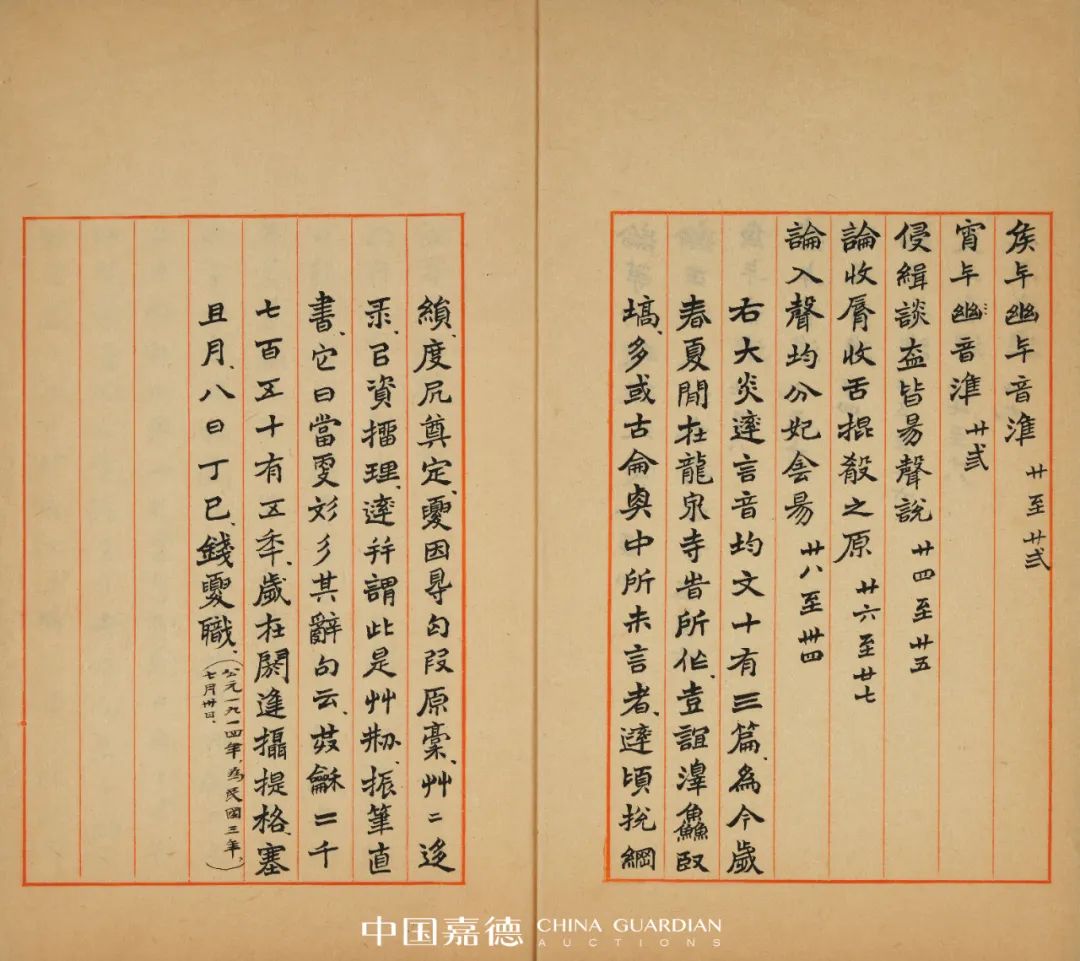 矦与幽与音準 廿至廿弍
宵与幽音準 廿弍
侵緝談盍皆昜聲說 廿四至廿五
論收脣收舌掍殽之原 廿六至廿七
論入聲均分妃侌昜 廿八至卅四
右大炎達言音均文十有三篇、為今歲
春夏閒在龍泉寺旹所作、壹誼滜鱻、臤
塙、多或古侖輿中所未言者、達頃挩綱
纇、度凥奠定、夒因㝵匄叚原稾、艸二迻
彔、㠯資揅理、達幷謂此是艸刱、振筆直
書、它日當更彣彡其辭句云、茲龢二千
七百五十有五秊、歲在閼逢攝提格、塞
且月、八日丁巳、錢夒職、
（公元一九一四年、為民國三年、七月卅日、）
中国嘉德 CHINA GUARDIAN
AUCTIONS